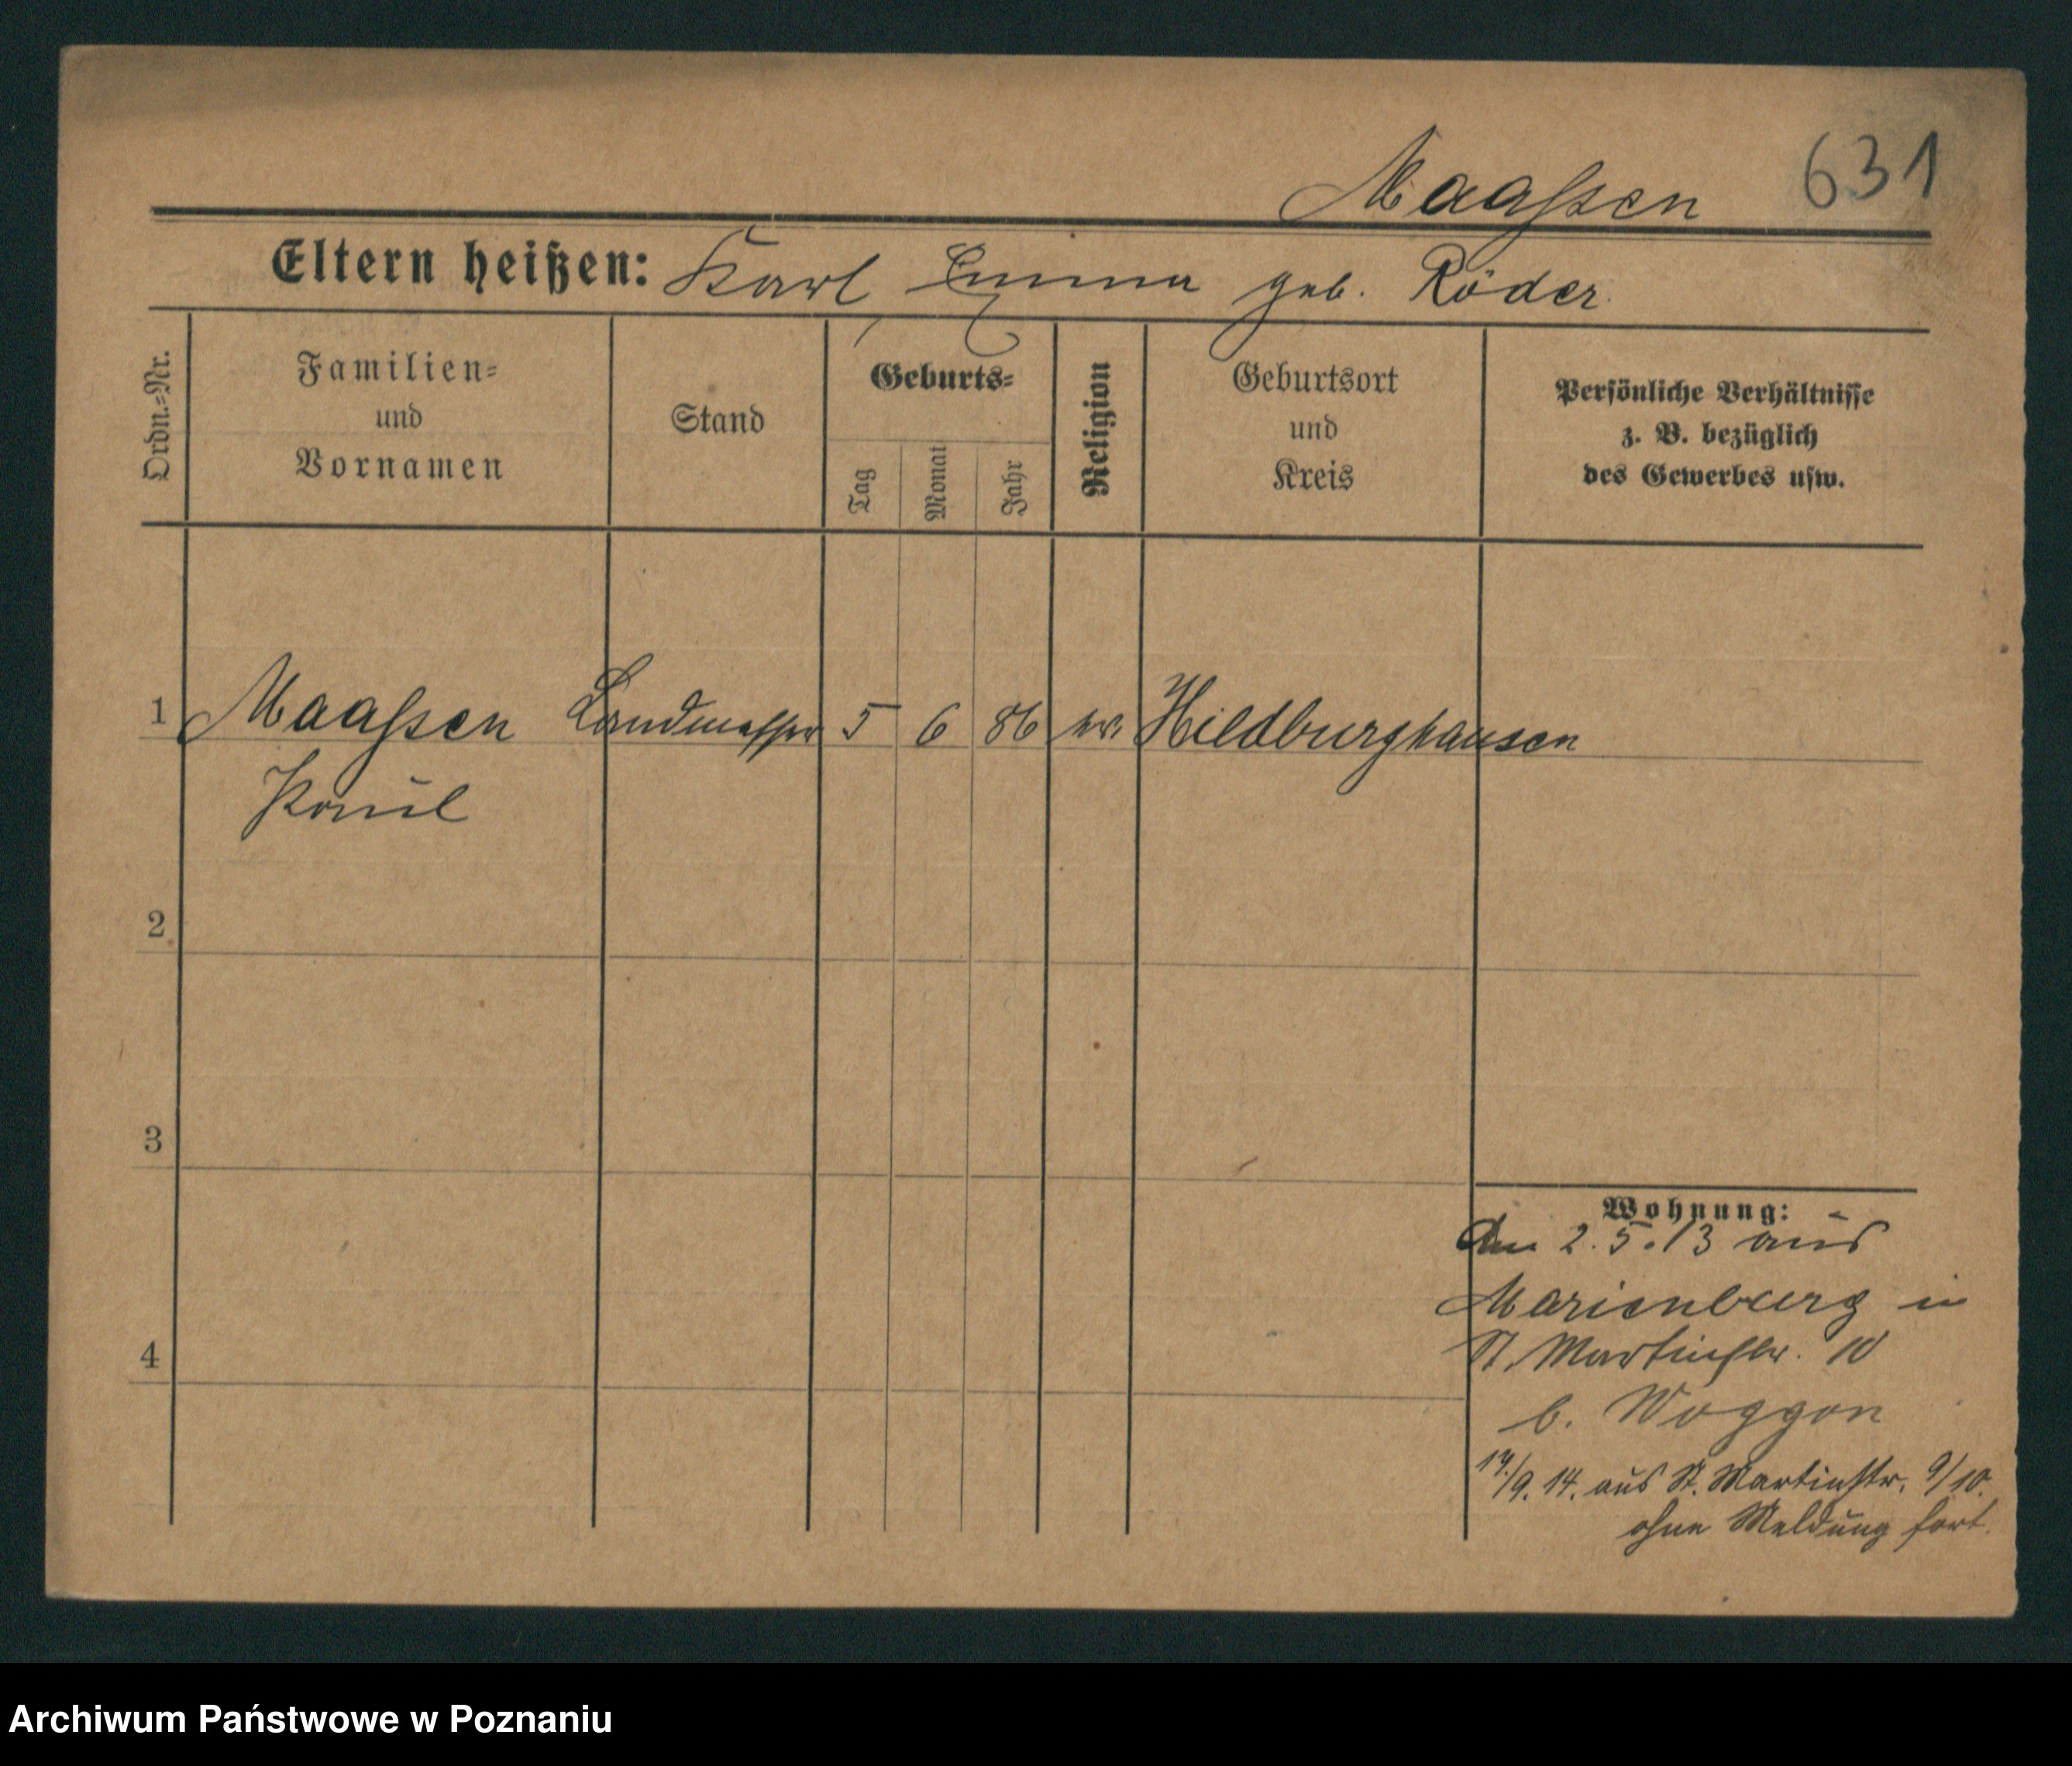 Maaßen 631
Eltern heißen: Karl Emma geb. Röder
Ordn.=Nr.
Familien=
und
Vornamen
Stand
Geburts=
Tag
Monat
Jahr
Religion
Geburtsort
und
Kreis
Persönliche Verhältnisse
z. B. bezüglich
des Gewerbes usw.
1 Maaßen Landmesser 5 6 86 Hildburghausen
Paul
2
3
4
Wohnung:
Am 2.5.13 aus
Marienburg in
St. Martinstr. 10
b. Woggon
14./9. 14. aus St. Martinstr. 9/10.
ohne Meldung fort.
Archiwum Państwowe w Poznaniu